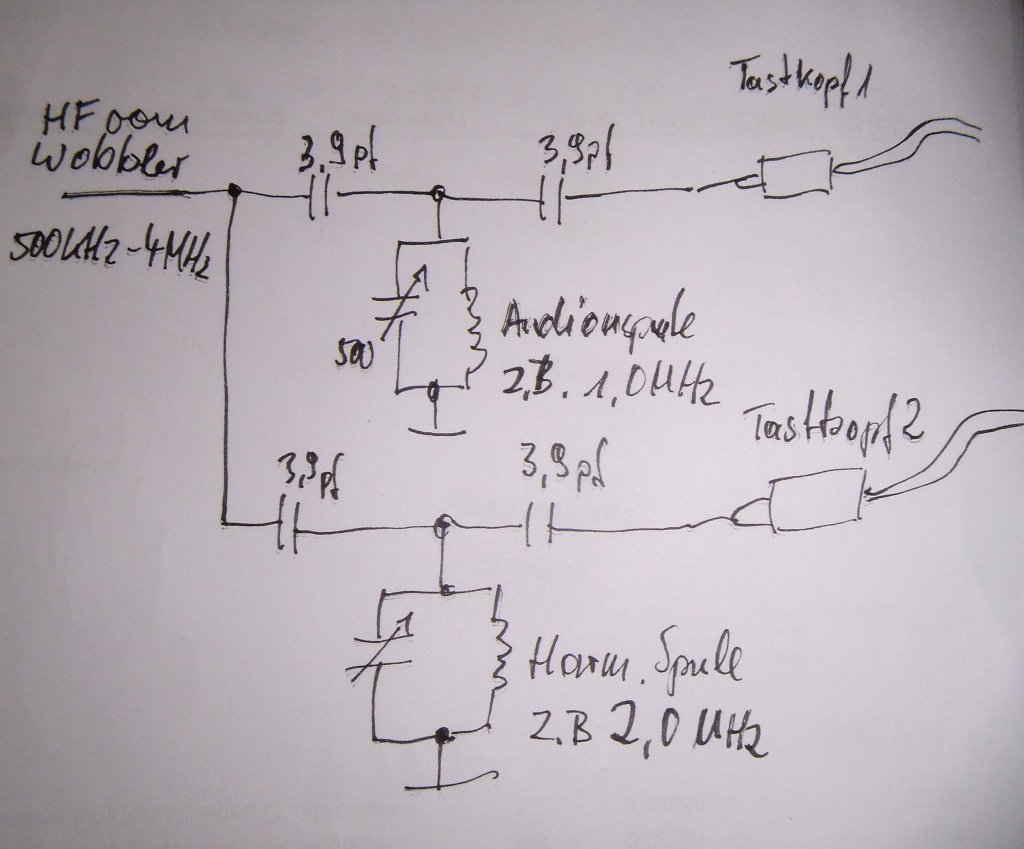 Tastkopf 1
HF vom
Wobbler
3,9pf
3,9pf
500KHz-4MHz
500
Audionspule
Z.B. 1,0MHz
Tastkopf 2
3,9pf
3,9pf
Harm. Spule
Z.B 2,0 MHz